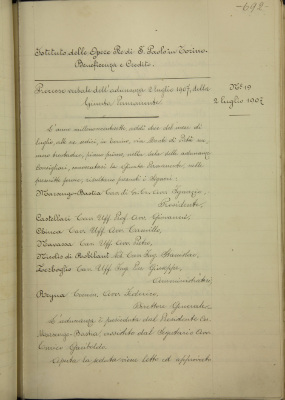 -692.
Istituto delle Opere Pie di S. Paolo in Torino.
Beneficenza e Credito.
Processo verbale dell'adunanza 2 luglio 1907, della
Giunta Permanente
N° 19
2 luglio 1907
L'anno millenovecentosette addì due del mese di
luglio alle ore sedici, in Torino, via Monte di Pietà nu-
mero trentadue, piano primo, nella sala delle adunanze
consigliari, convocatasi la Giunta Permanente, nelle
presenti forme, risultano presenti i Signori:
Marsengo-Bastia Ignazio,
Presidente,
Castellari Cav. Uff. Prof. Avv. Giovanni,
Cav. Uff. Avv. Camillo,
Cav. Uff. Avv. Pietro,
Cav. Ing. Stanislao,
Zerboglio Cav. Uff. Ing. Giuseppe,
Amministratori,
Comm. Avv. Federico,
Direttore Generale.
L'adunanza è presieduta dal Presidente
Marsengo Bastia, assistito dal Segretario Avv.
Enrico Garibaldi.
Aperta la seduta viene letto ed approvato